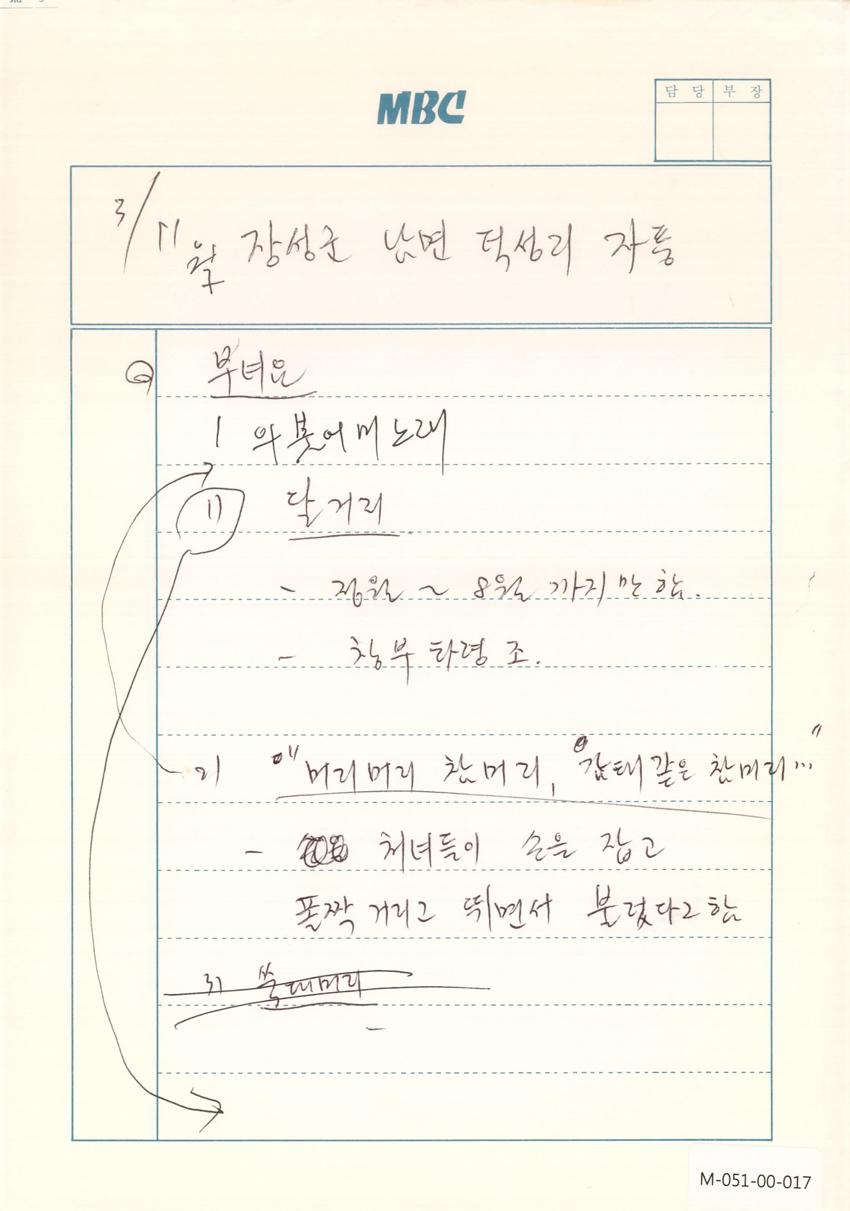 MBC
담 당 부 장
3/11 장성군 남면 덕성리 자뭉
부녀요
1 악붓어미노래
1) 달거리
- 정월 ~ 8월 까지만 함.
- 창부 타령 조.
2) "머리머리 참머리, 감태같은 참머리..."
- 처녀들이 손을 잡고
폴짝 거리고 뛰면서 불렀다고 함
3) 쑥대머리
-
M-051-00-017